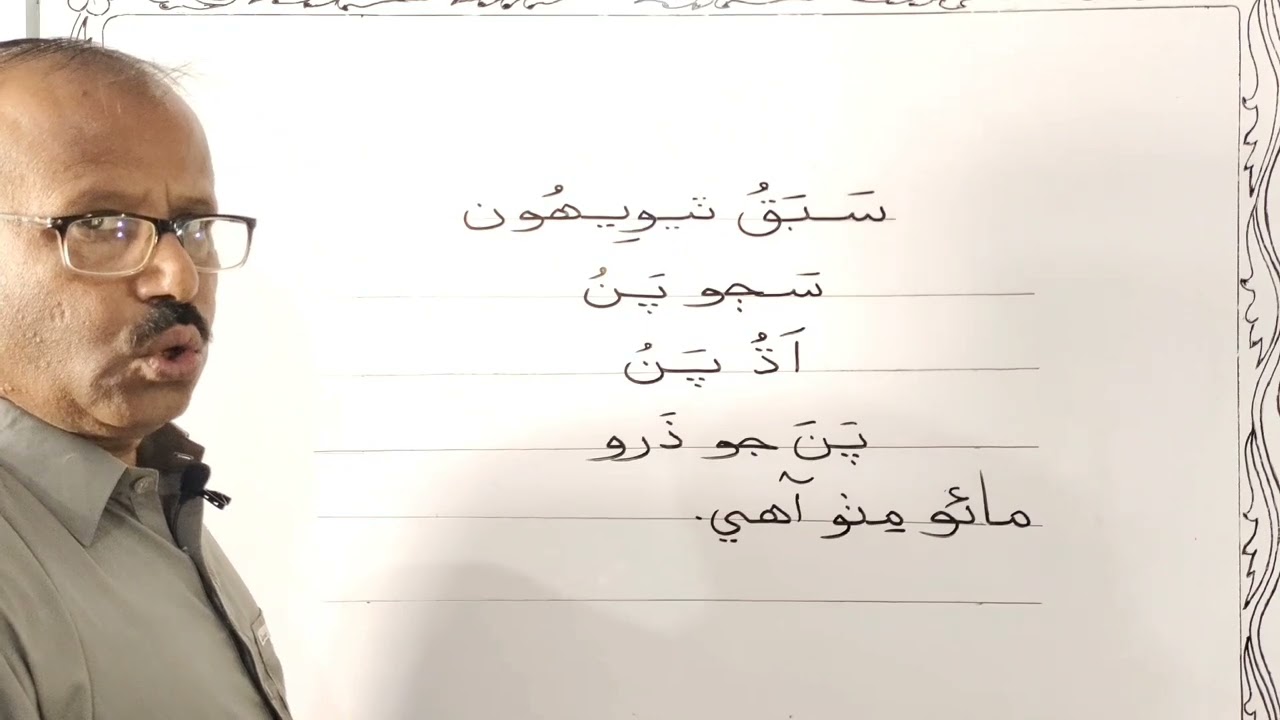 سَبَقُ ٽيوِيهُون
سَڄو پَنُ
اَڌُ پَنُ
پَنَ جو ذَرو
مائو مِٺو آهي.